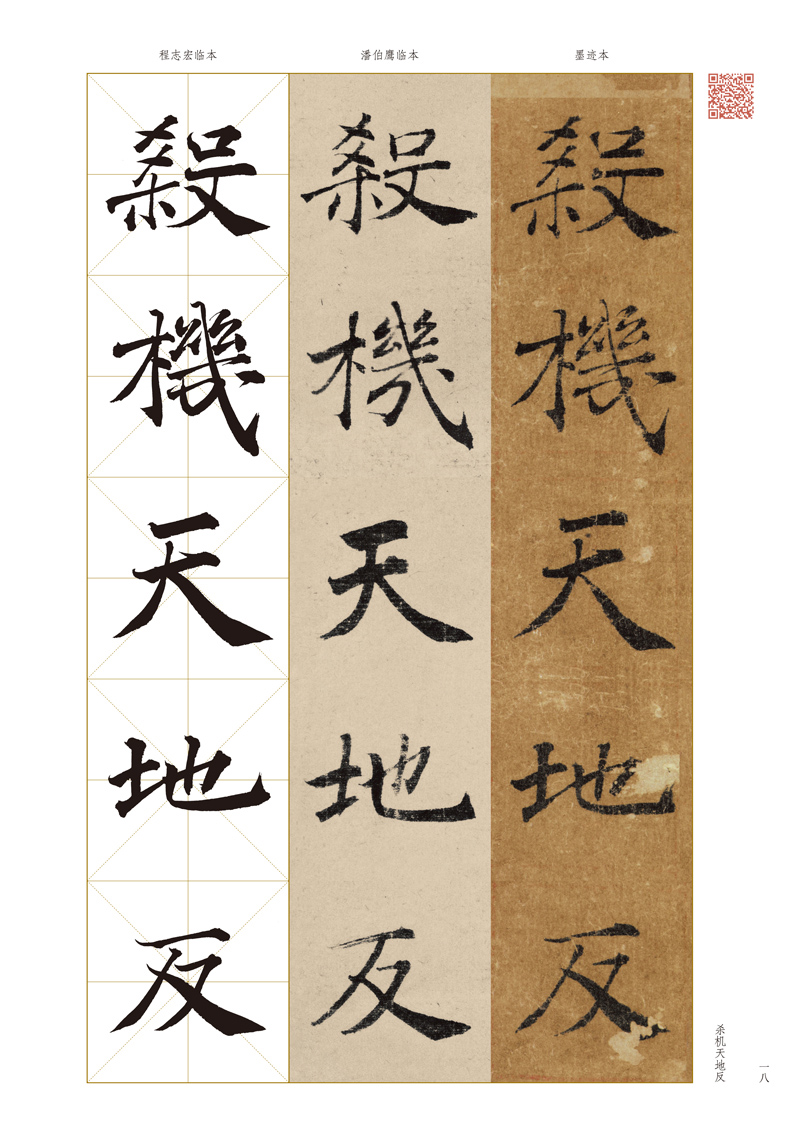 程志宏临本
潘伯鹰临本
墨迹本
殺機天地反
殺機天地反
殺機天地反
杀机天地反
一八